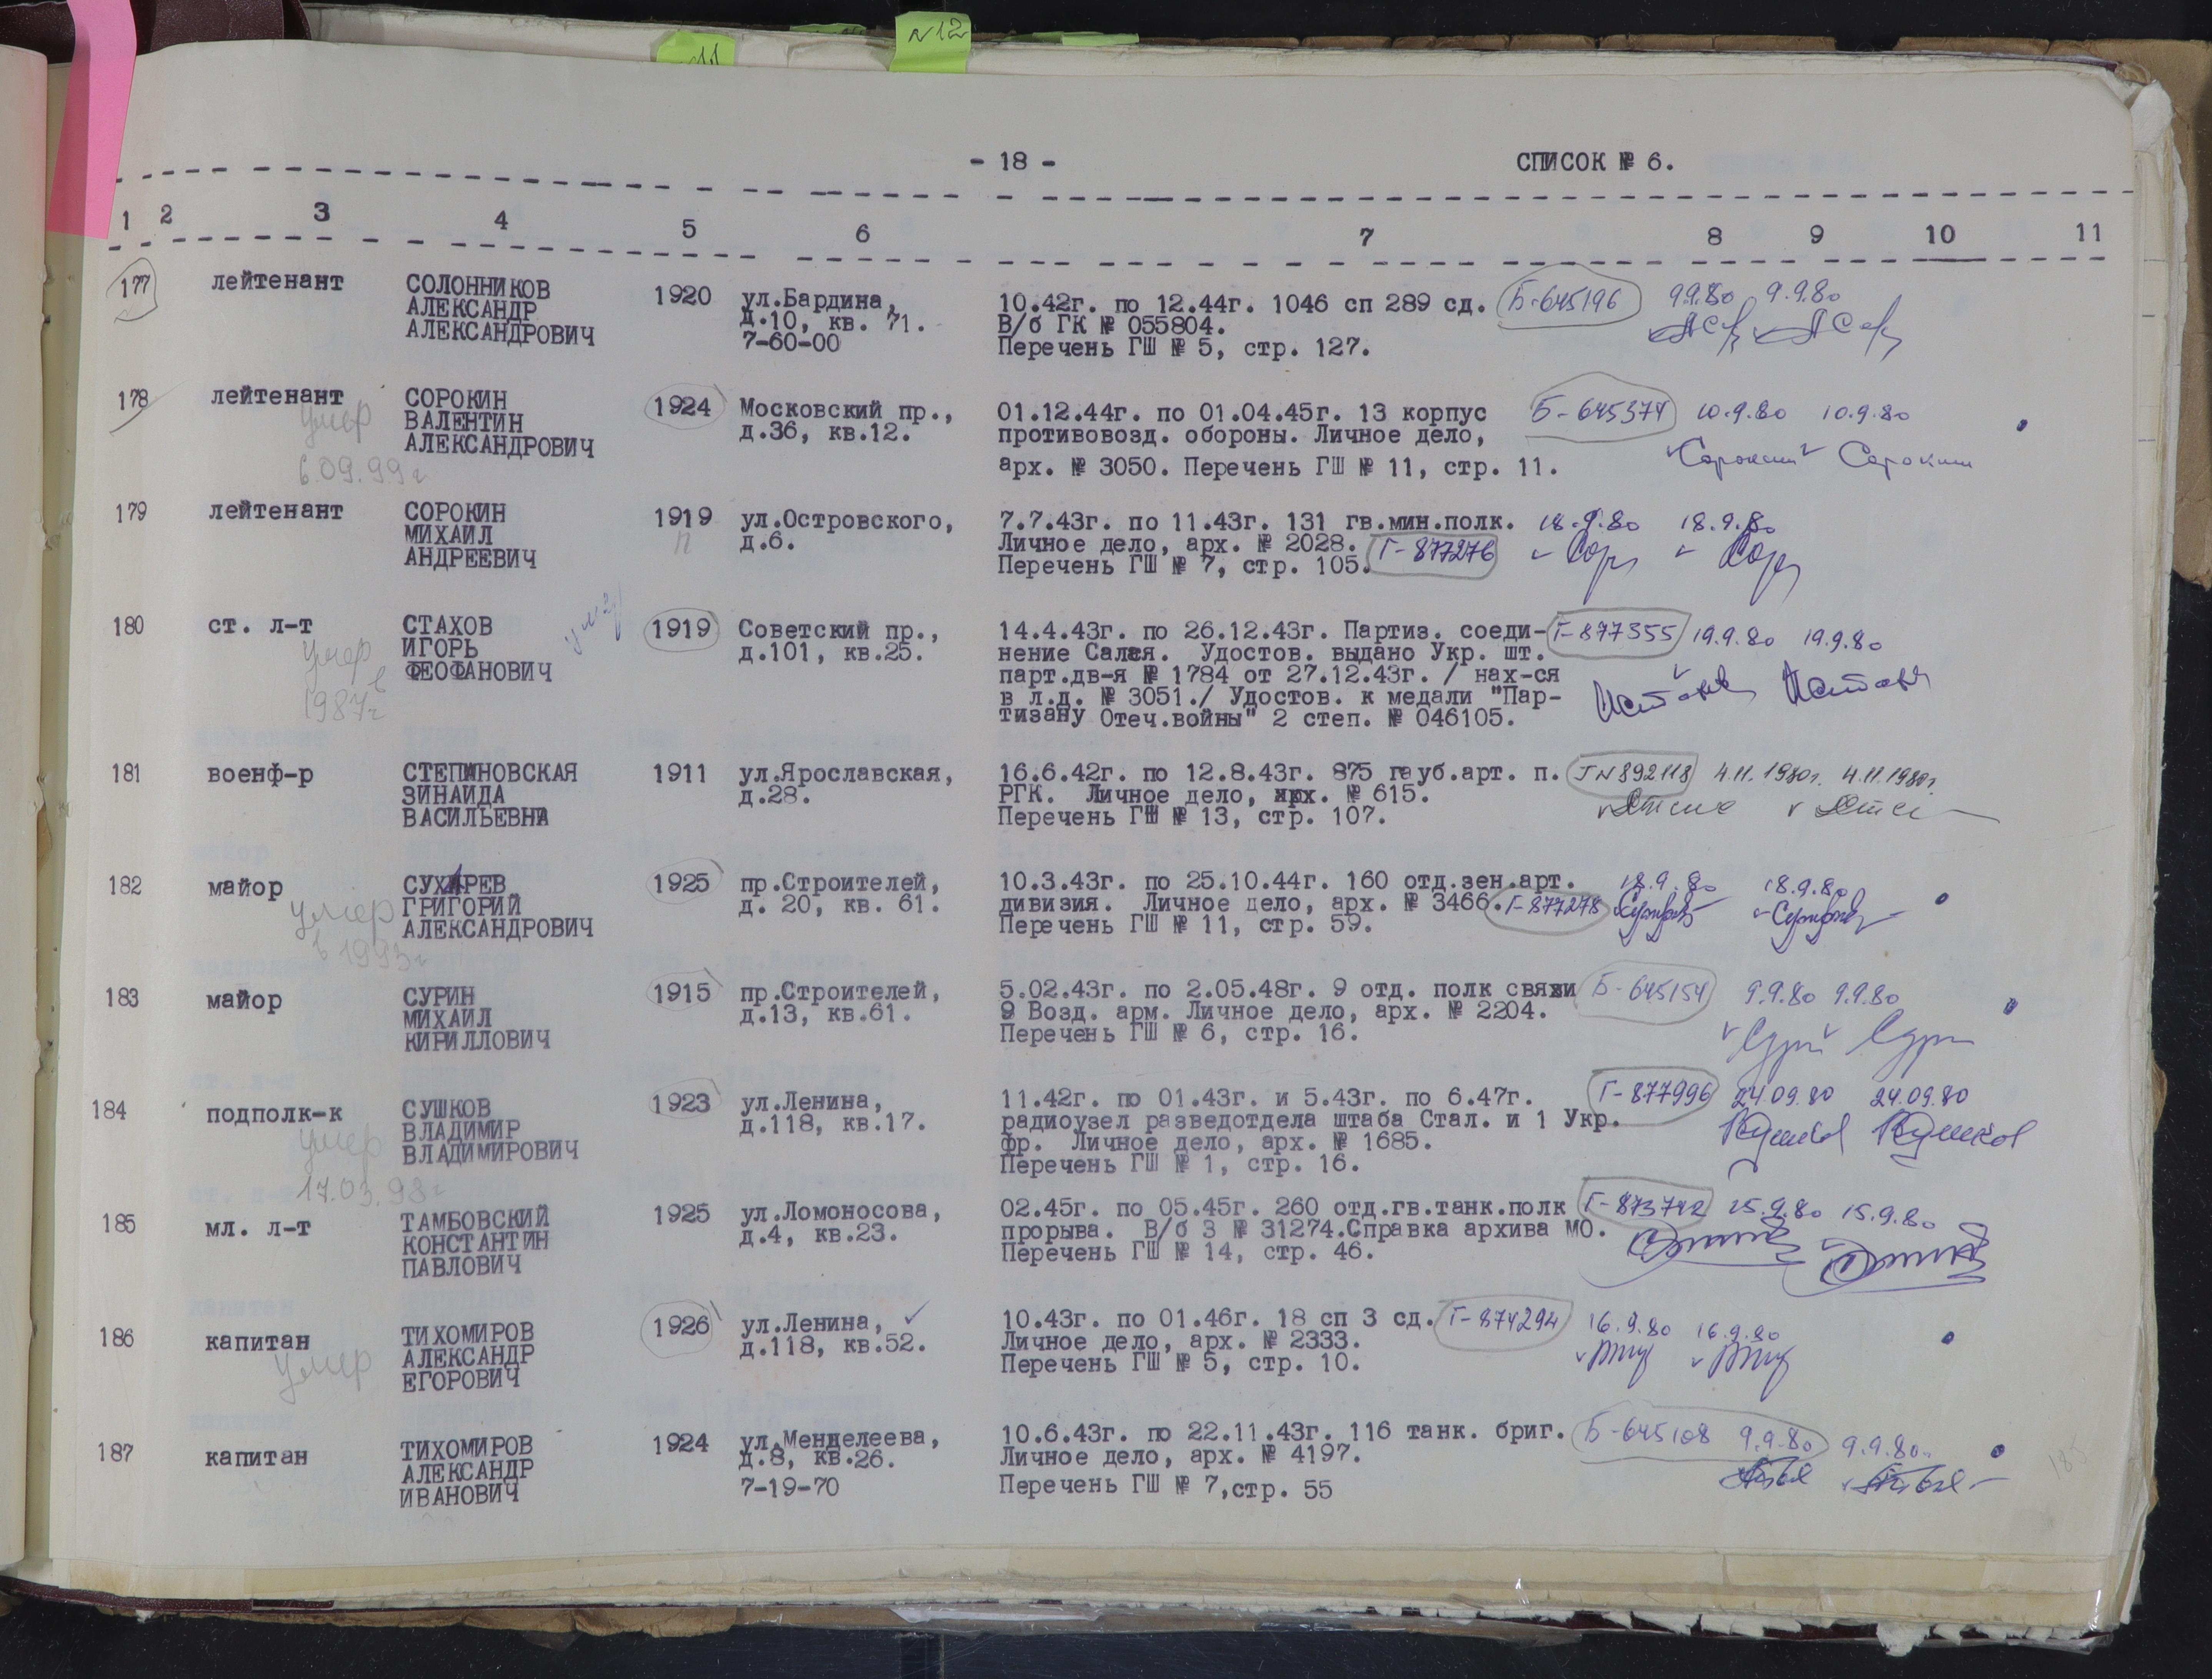 №12
- 18 -
СПИСОК № 6.
1 2 3 4 5 6 7 8 9 10 11
177 лейтенант СОЛОННИКОВ 1920 ул.Бардина, 10.42г. по 12.44г. 1046 сп 289 сд. Б-645196 9.9.80 9.9.80
АЛЕКСАНДР д.10, кв. 71. В/б ГК № 055804.
АЛЕКСАНДРОВИЧ 7-60-00 Перечень ГШ № 5, стр. 127.
178 лейтенант СОРОКИН 1924 Московский пр., 01.12.44г. по 01.04.45г. 13 корпус Б-645374 10.9.80 10.9.80
умер ВАЛЕНТИН д.36, кв.12. противовозд. обороны. Личное дело,
АЛЕКСАНДРОВИЧ арх. № 3050. Перечень ГШ № 11, стр. 11. Сорокин Сорокин
6.09.99г
179 лейтенант СОРОКИН 1919 ул.Островского, 7.7.43г. по 11.43г. 131 гв.мин.полк. 18.9.80 18.9.80
МИХАИЛ п д.6. Личное дело, арх. № 2028. Г-877276
АНДРЕЕВИЧ Перечень ГШ № 7, стр. 105.
180 ст. л-т СТАХОВ умер 1919 Советский пр., 14.4.43г. по 26.12.43г. Партиз. соеди- Г-877355 19.9.80 19.9.80
умер ИГОРЬ д.101, кв.25. нение Салая. Удостов. выдано Укр. шт.
в ФЕОФАНОВИЧ парт.дв-я № 1784 от 27.12.43г. / нах-ся
1987г в л.д. № 3051./ Удостов. к медали "Пар-
тизану Отеч.войны" 2 степ. № 046105.
181 военф-р СТЕПАНОВСКАЯ 1911 ул.Ярославская, 16.6.42г. по 12.8.43г. 875 гауб.арт. п. Г№892118 4.11.1980г. 4.11.1980г.
ЗИНАИДА д.28. РГК. Личное дело, арх. № 615.
ВАСИЛЬЕВНА Перечень ГШ № 13, стр. 107.
182 майор СУХАРЕВ 1925 пр.Строителей, 10.3.43г. по 25.10.44г. 160 отд.зен.арт. 18.9.80 18.9.80
умер ГРИГОРИЙ д. 20, кв. 61. дивизия. Личное дело, арх. № 3466. Г-877278
в 1993г АЛЕКСАНДРОВИЧ Перечень ГШ № 11, стр. 59.
183 майор СУРИН 1915 пр.Строителей, 5.02.43г. по 2.05.48г. 9 отд. полк связи Б-645154 9.9.80 9.9.80
МИХАИЛ д.13, кв.61. 9 Возд. арм. Личное дело, арх. № 2204.
КИРИЛЛОВИЧ Перечень ГШ № 6, стр. 16.
184 подполк-к СУШКОВ 1923 ул.Ленина, 11.42г. по 01.43г. и 5.43г. по 6.47г. Г-877996 24.09.80 24.09.80
умер ВЛАДИМИР д.118, кв.17. радиоузел разведотдела штаба Стал. и 1 Укр.
ВЛАДИМИРОВИЧ фр. Личное дело, арх. № 1685.
17.03.98г Перечень ГШ № 1, стр. 16.
185 мл. л-т ТАМБОВСКИЙ 1925 ул.Ломоносова, 02.45г. по 05.45г. 260 отд.гв.танк.полк Г-873742 15.9.80 15.9.80
КОНСТАНТИН д.4, кв.23. прорыва. В/б З № 31274.Справка архива МО.
ПАВЛОВИЧ Перечень ГШ № 14, стр. 46.
186 капитан ТИХОМИРОВ 1926 ул.Ленина, 10.43г. по 01.46г. 18 сп 3 сд. Г-874294 16.9.80 16.9.80
умер АЛЕКСАНДР д.118, кв.52. Личное дело, арх. № 2333.
ЕГОРОВИЧ Перечень ГШ № 5, стр. 10.
187 капитан ТИХОМИРОВ 1924 ул.Менделеева, 10.6.43г. по 22.11.43г. 116 танк. бриг. Б-645108 9.9.80 9.9.80
АЛЕКСАНДР д.8, кв.26. Личное дело, арх. № 4197.
ИВАНОВИЧ 7-19-70 Перечень ГШ № 7,стр. 55
185